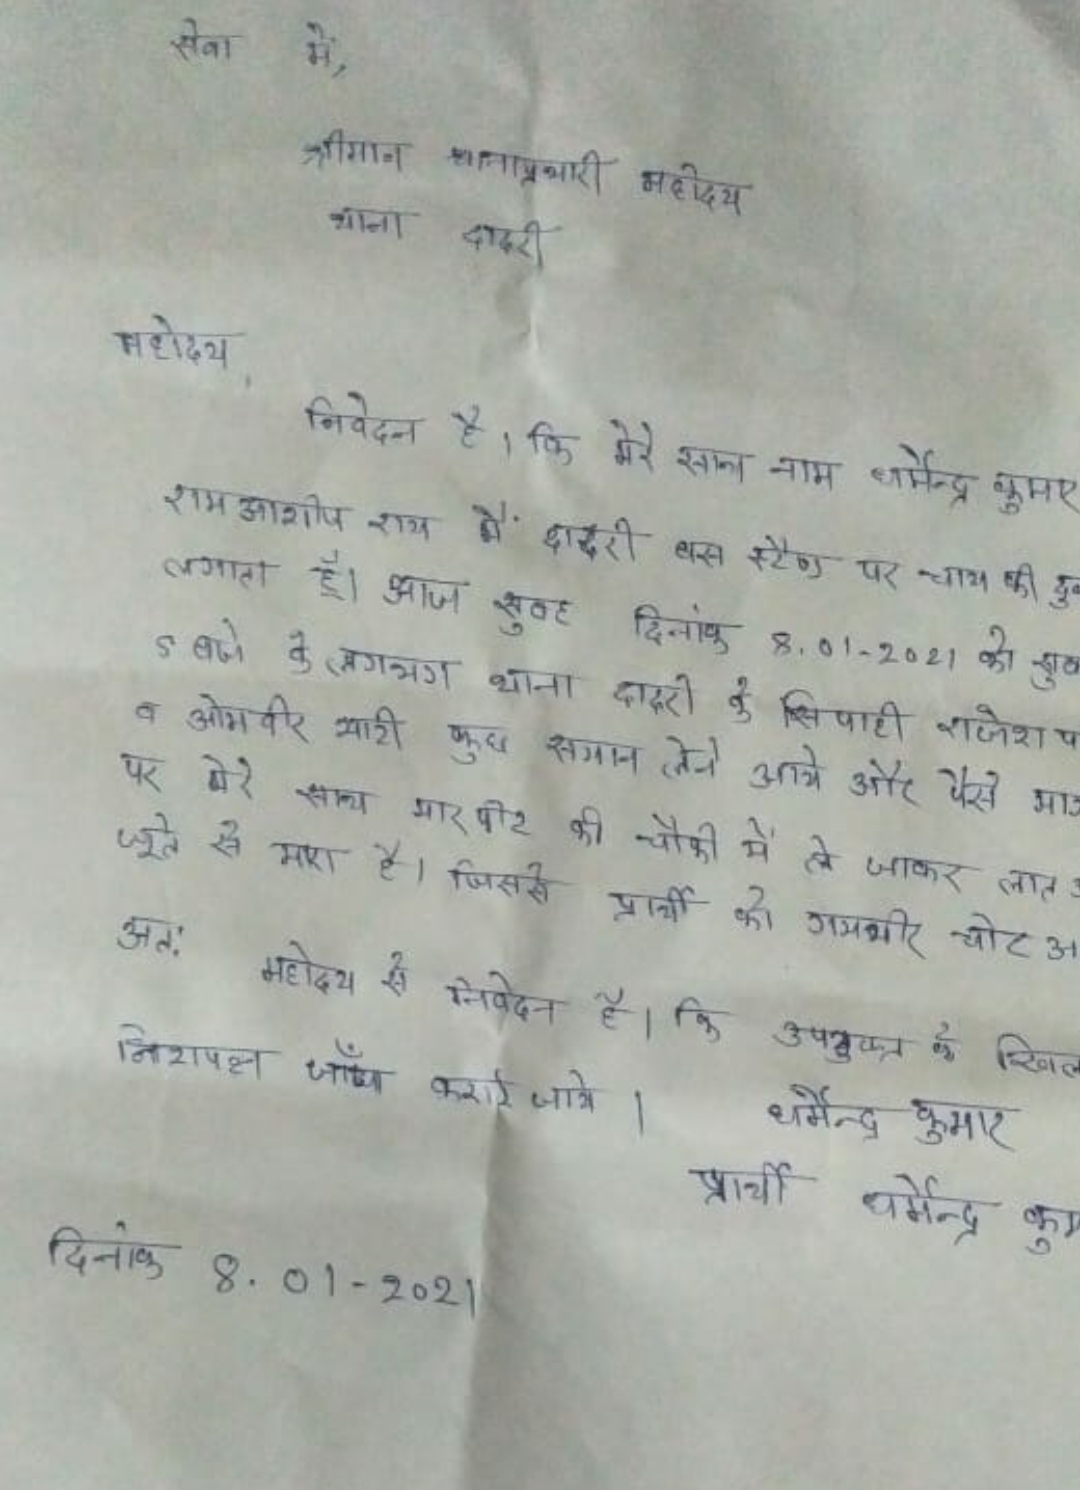 सेवा में,
श्रीमान थानाप्रभारी महोदय
थाना दादरी
महोदय,
निवेदन है। कि मेरे साथ नाम धर्मेन्द्र कुमार
रामआशीष राय मैं दादरी बस स्टैण्ड पर चाय की
लगाता हूँ। आज सुबह दिनांक 8.01-2021 को
5 बजे के लगभग थाना दादरी के सिपाही राजेश
व ओमवीर भाटी कुछ समान लेने आये और पैसे
पर मेरे साथ मारपीट की चौकी में ले जाकर लात
जूते से मारा है। जिससे प्रार्थी को गमभीर चोट
अत:
महोदय से निवेदन है। कि उपयुक्त के
निशपक्ष जाँच कराई जाये।
धर्मेन्द्र कुमार
प्रार्थी धर्मेन्द्र
दिनांक 8.01-2021